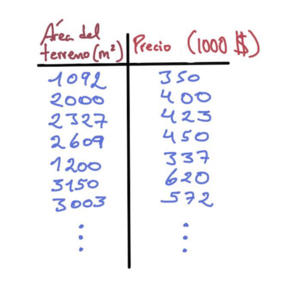 Área del terreno (m²) Precio (1000 $)
1092 350
2000 400
2327 423
2609 450
1200 337
3150 620
3003 572